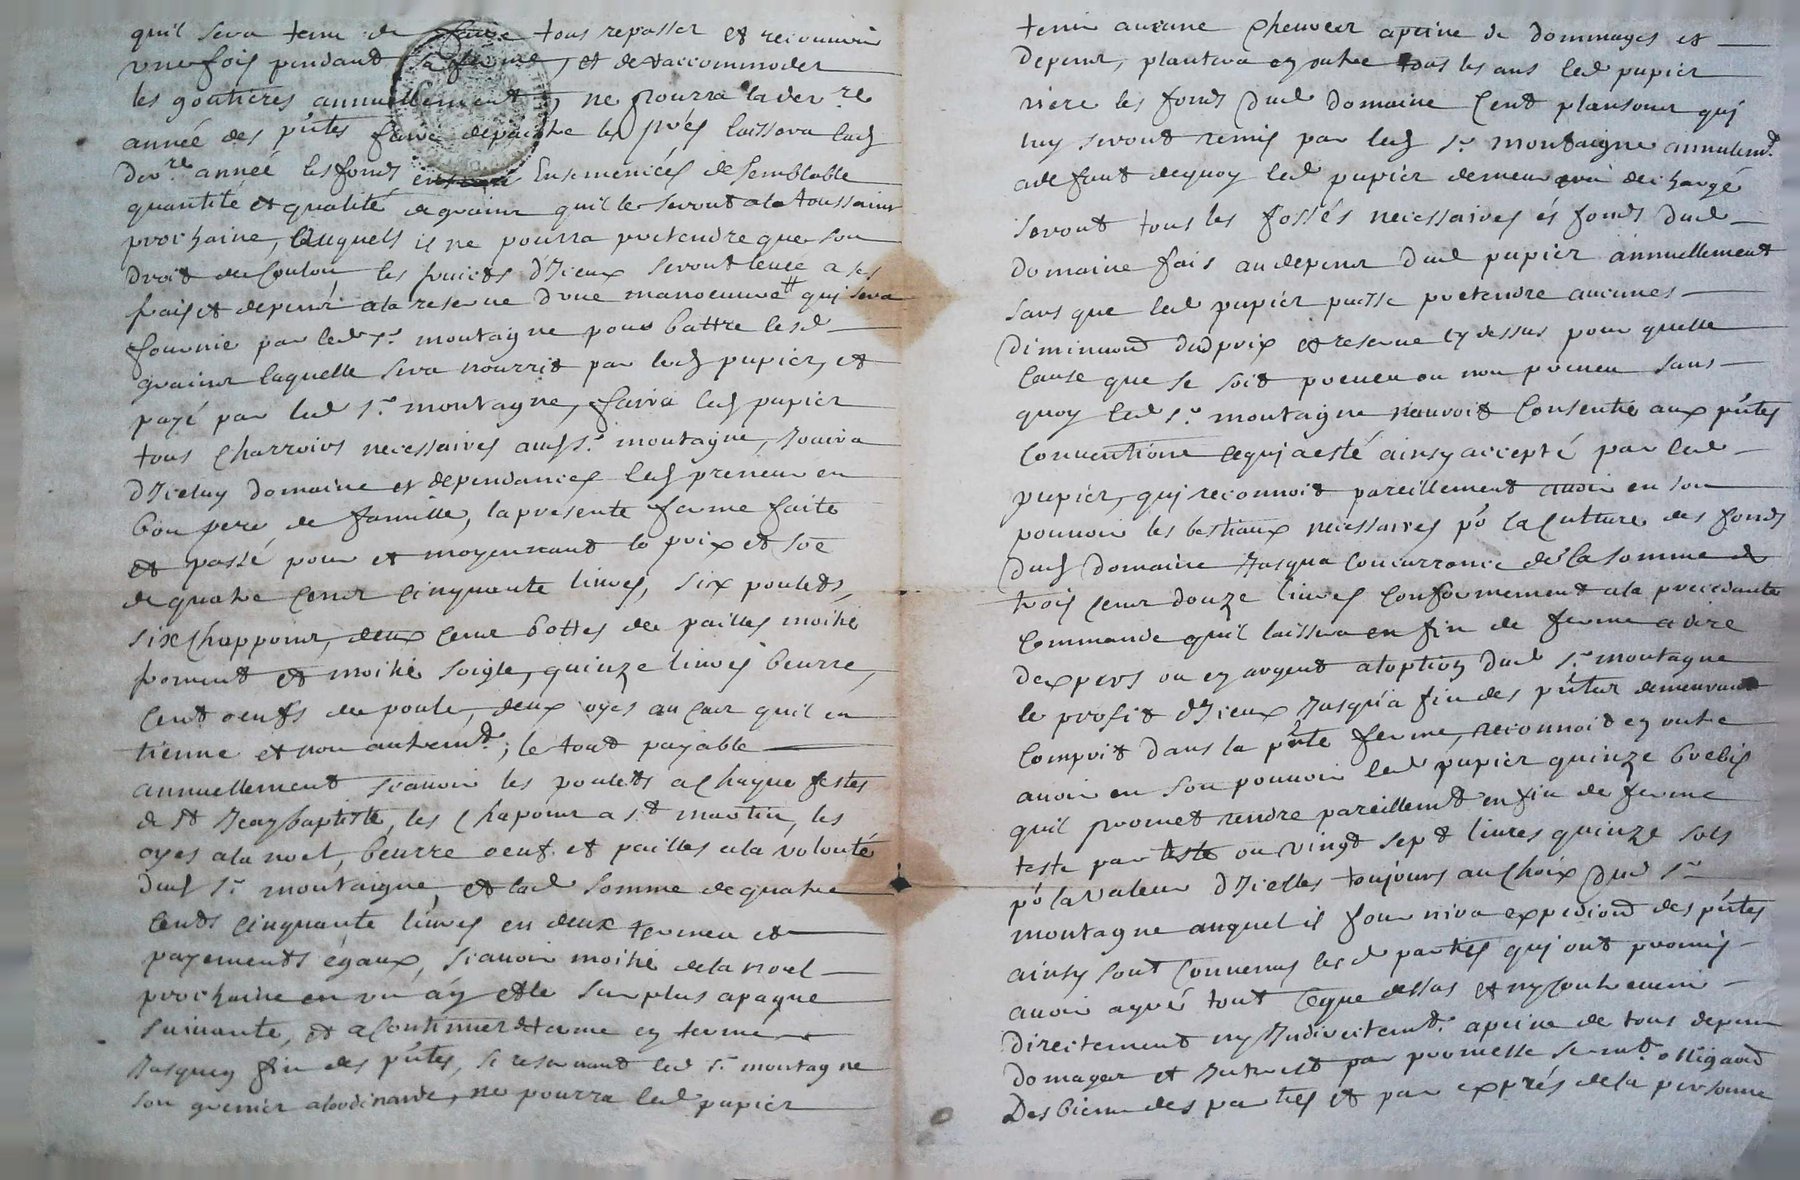 quil sera tenu de faire tous repasser et recouvrir
une fois pendant sa ferme, et de raccommoder
les goutieres annuellement, ne pourra lad der.re
année des p̃ntes faire depaitre les prés laissera lad
der.re année les fonds Ensemencés de semblable
quantité et qualité de grains quil le seront a la toussaint
prochaine, auquels il ne pourra pretendre que son
droit de Coulon, les fruicts d'Iceux seront levée a ses
frais et depens a la reserve d'une manoeuvre qui sera
fournie par led Sr. montagne pour battre lesd
grains laquelle sera nourrit par led papier, et
payé par led Sr. montagne, faira led papier
tous Charroirs necessaires aud Sr. montagne, Jouira
d'Iceluy domaine et dependances led preneur en
bon pere de famille, la presente ferme faite
et passé pour et moyennant le prix et soẽ
de quatre Cent Cinquante livres, six poulets,
six Chappons, deux Cent bottes de pailles moitié
froment et moitié soigle, quinze livres beurre,
Cent oeufs de poule, deux oyes au Cas quil en
tienne et non autremt.; le tout payable
annuellement scavoir les poulets a Chaque festes
de St Jean baptiste, les Chapons a St martin, les
oyes a la noel, beurre oeuf et pailles a la volonté
dud Sr. montaigne, et lad somme de quatre
Cents Cinquante livres en deux termes et
payements égaux, scavoir moitié de la noel
prochaine en un an et le surplus a paque
suivante, et a Continuer de terme en terme
Jusquen fin des p̃ntes, se reservant led Sr. montagne
son grenier a lordinaire, ne pourra led papier
tenir aucune Chevres a peine de dommages et
depens, plantera en outre tous les ans led papier
riere les fonds dud domaine Cent plansons qui
luy seront remis par led Sr. montaigne annulemt.
a defaut dequoy led papier demeurera dechargé
seront tous les fossés necessaires és fonds dud
domaine fais au depens dud papier annuellement
sans que led papier puisse pretendre aucunes
diminuõn dud prix et reserve cy dessus pour quelle
Cause que se soit preveu ou non preveu sans
quoy led Sr. montaigne nauroit Consentie aux p̃ntes
Conventions cequi a esté ainsy accepté par led
papier, qui reconnoit pareillement avoir en son
pouvoir les bestiaux necessaires põ la Culture des fonds
dud domaine Jusqua Concurrance de la somme de
trois Cent douze livres Conformement a la precedante
Commande quil laissera en fin de ferme a dire
dexpers ou en argent a loption dud Sr. montagne
le profit d'Iceux Jusqua fin des p̃ntes demeurant
Comprit dans la p̃nte ferme, reconnoit en outre
avoir en son pouvoir led papier quinze brebis
quil promet rendre pareillemt en fin de ferme
teste par teste ou vingt sept livres quinze sols
põ la valeur d'Icelles toujours au Choix dud Sr
montagne auquel il fournira expediõn des p̃ntes
ainsy sont Convenus lesd parties qui ont promis
avoir agréé tout Ceque dessus et ny Contrevenir
directement ny Indirectemt. a peine de tous depens
domages et Interest par promesse sermt. obligaõn
Des biens des parties et par exprés de la personne